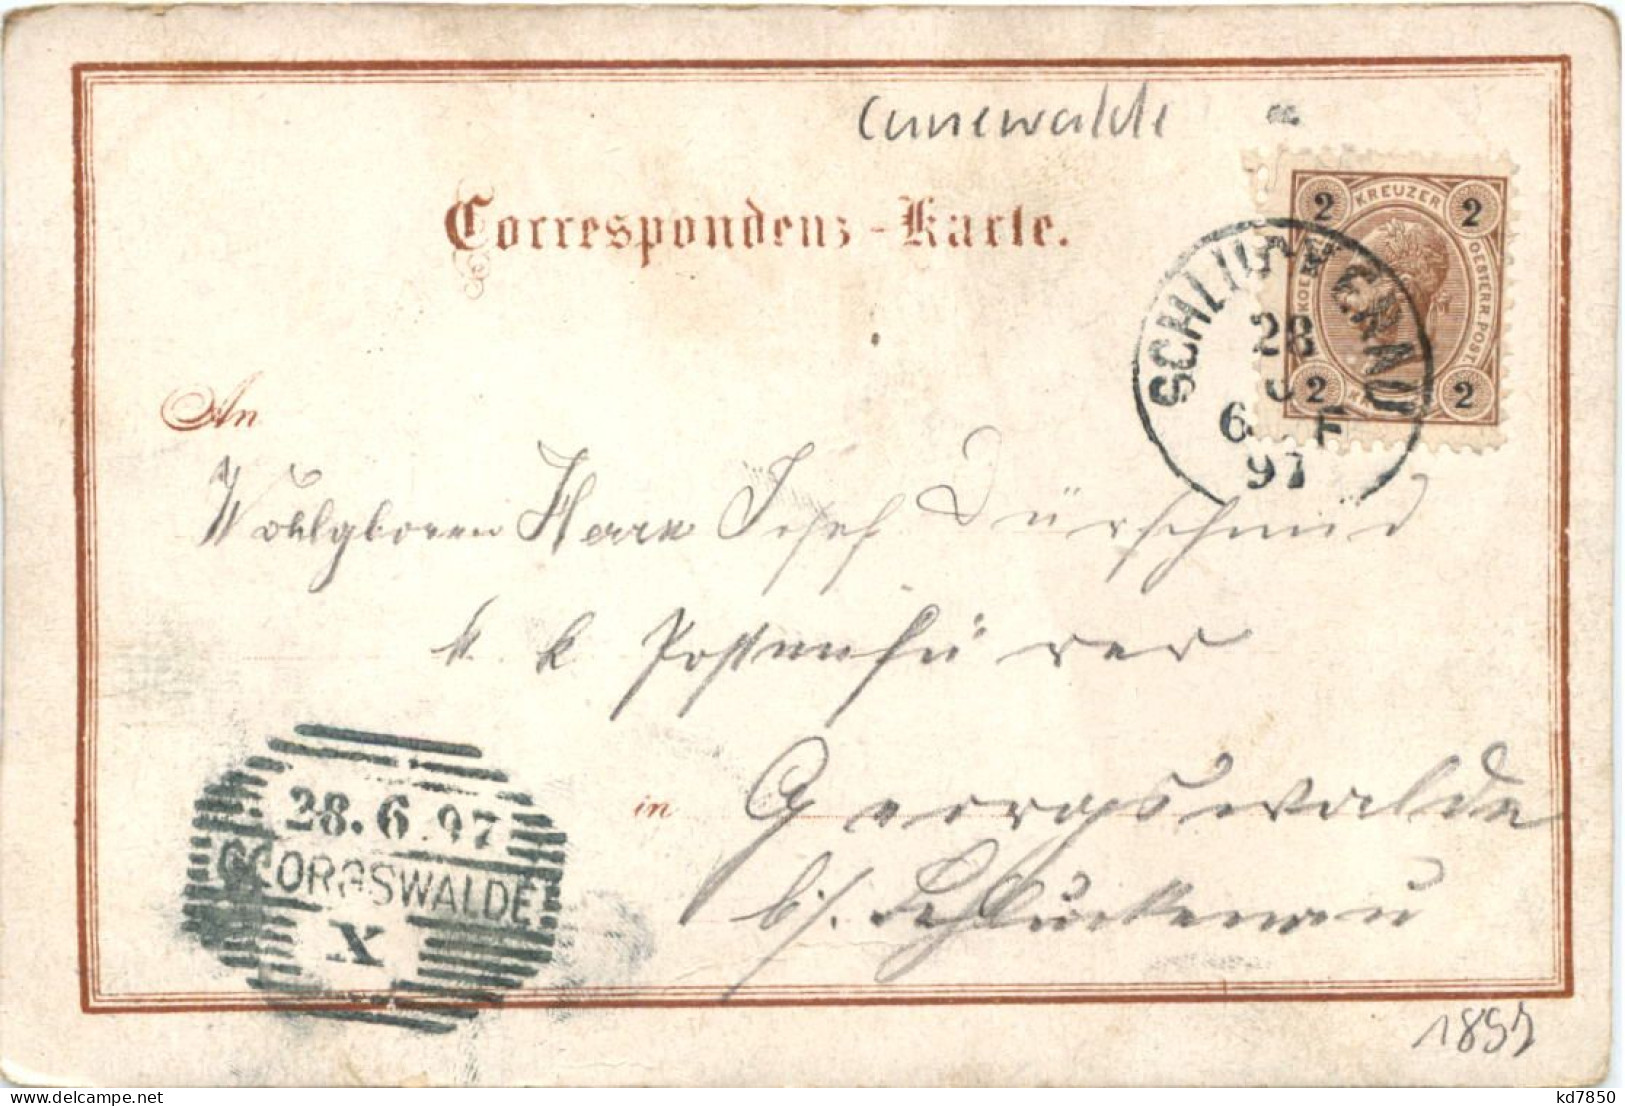 Cunewalde
Correspondenz-Karte.
2 KREUZER 2
OESTERR. POST.
2 2
SCHLUCKENAU
28
6 F
97
An
Wohlgeboren Herrn Josef Dürschmid
k. k. Postenfürer
in Georgswalde
b/. Schluckenau
28.6.97
GEORGSWALDE
X
1897
kd7850